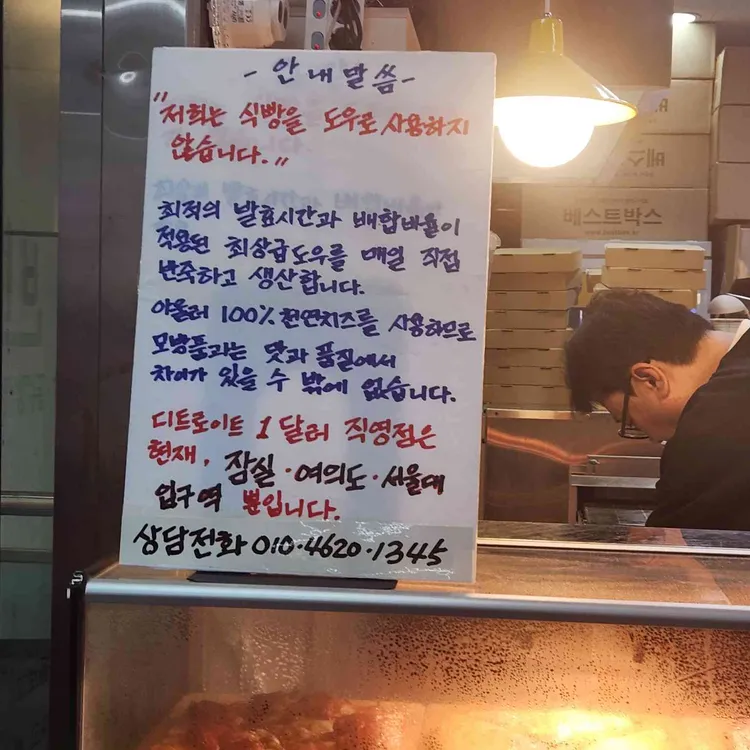 - 안내말씀 -
"저희는 식빵을 도우로 사용하지
않습니다."
최적의 발효시간과 배합비율이
적용된 최상급도우를 매일 직접
반죽하고 생산합니다.
아울러 100% 천연치즈를 사용하므로
모방품과는 맛과 품질에서
차이가 있을 수 밖에 없습니다.
디트로이트 1달러 직영점은
현재, 잠실·여의도·서울대
입구역 뿐입니다.
상담전화 010·4620·1345
베스트박스